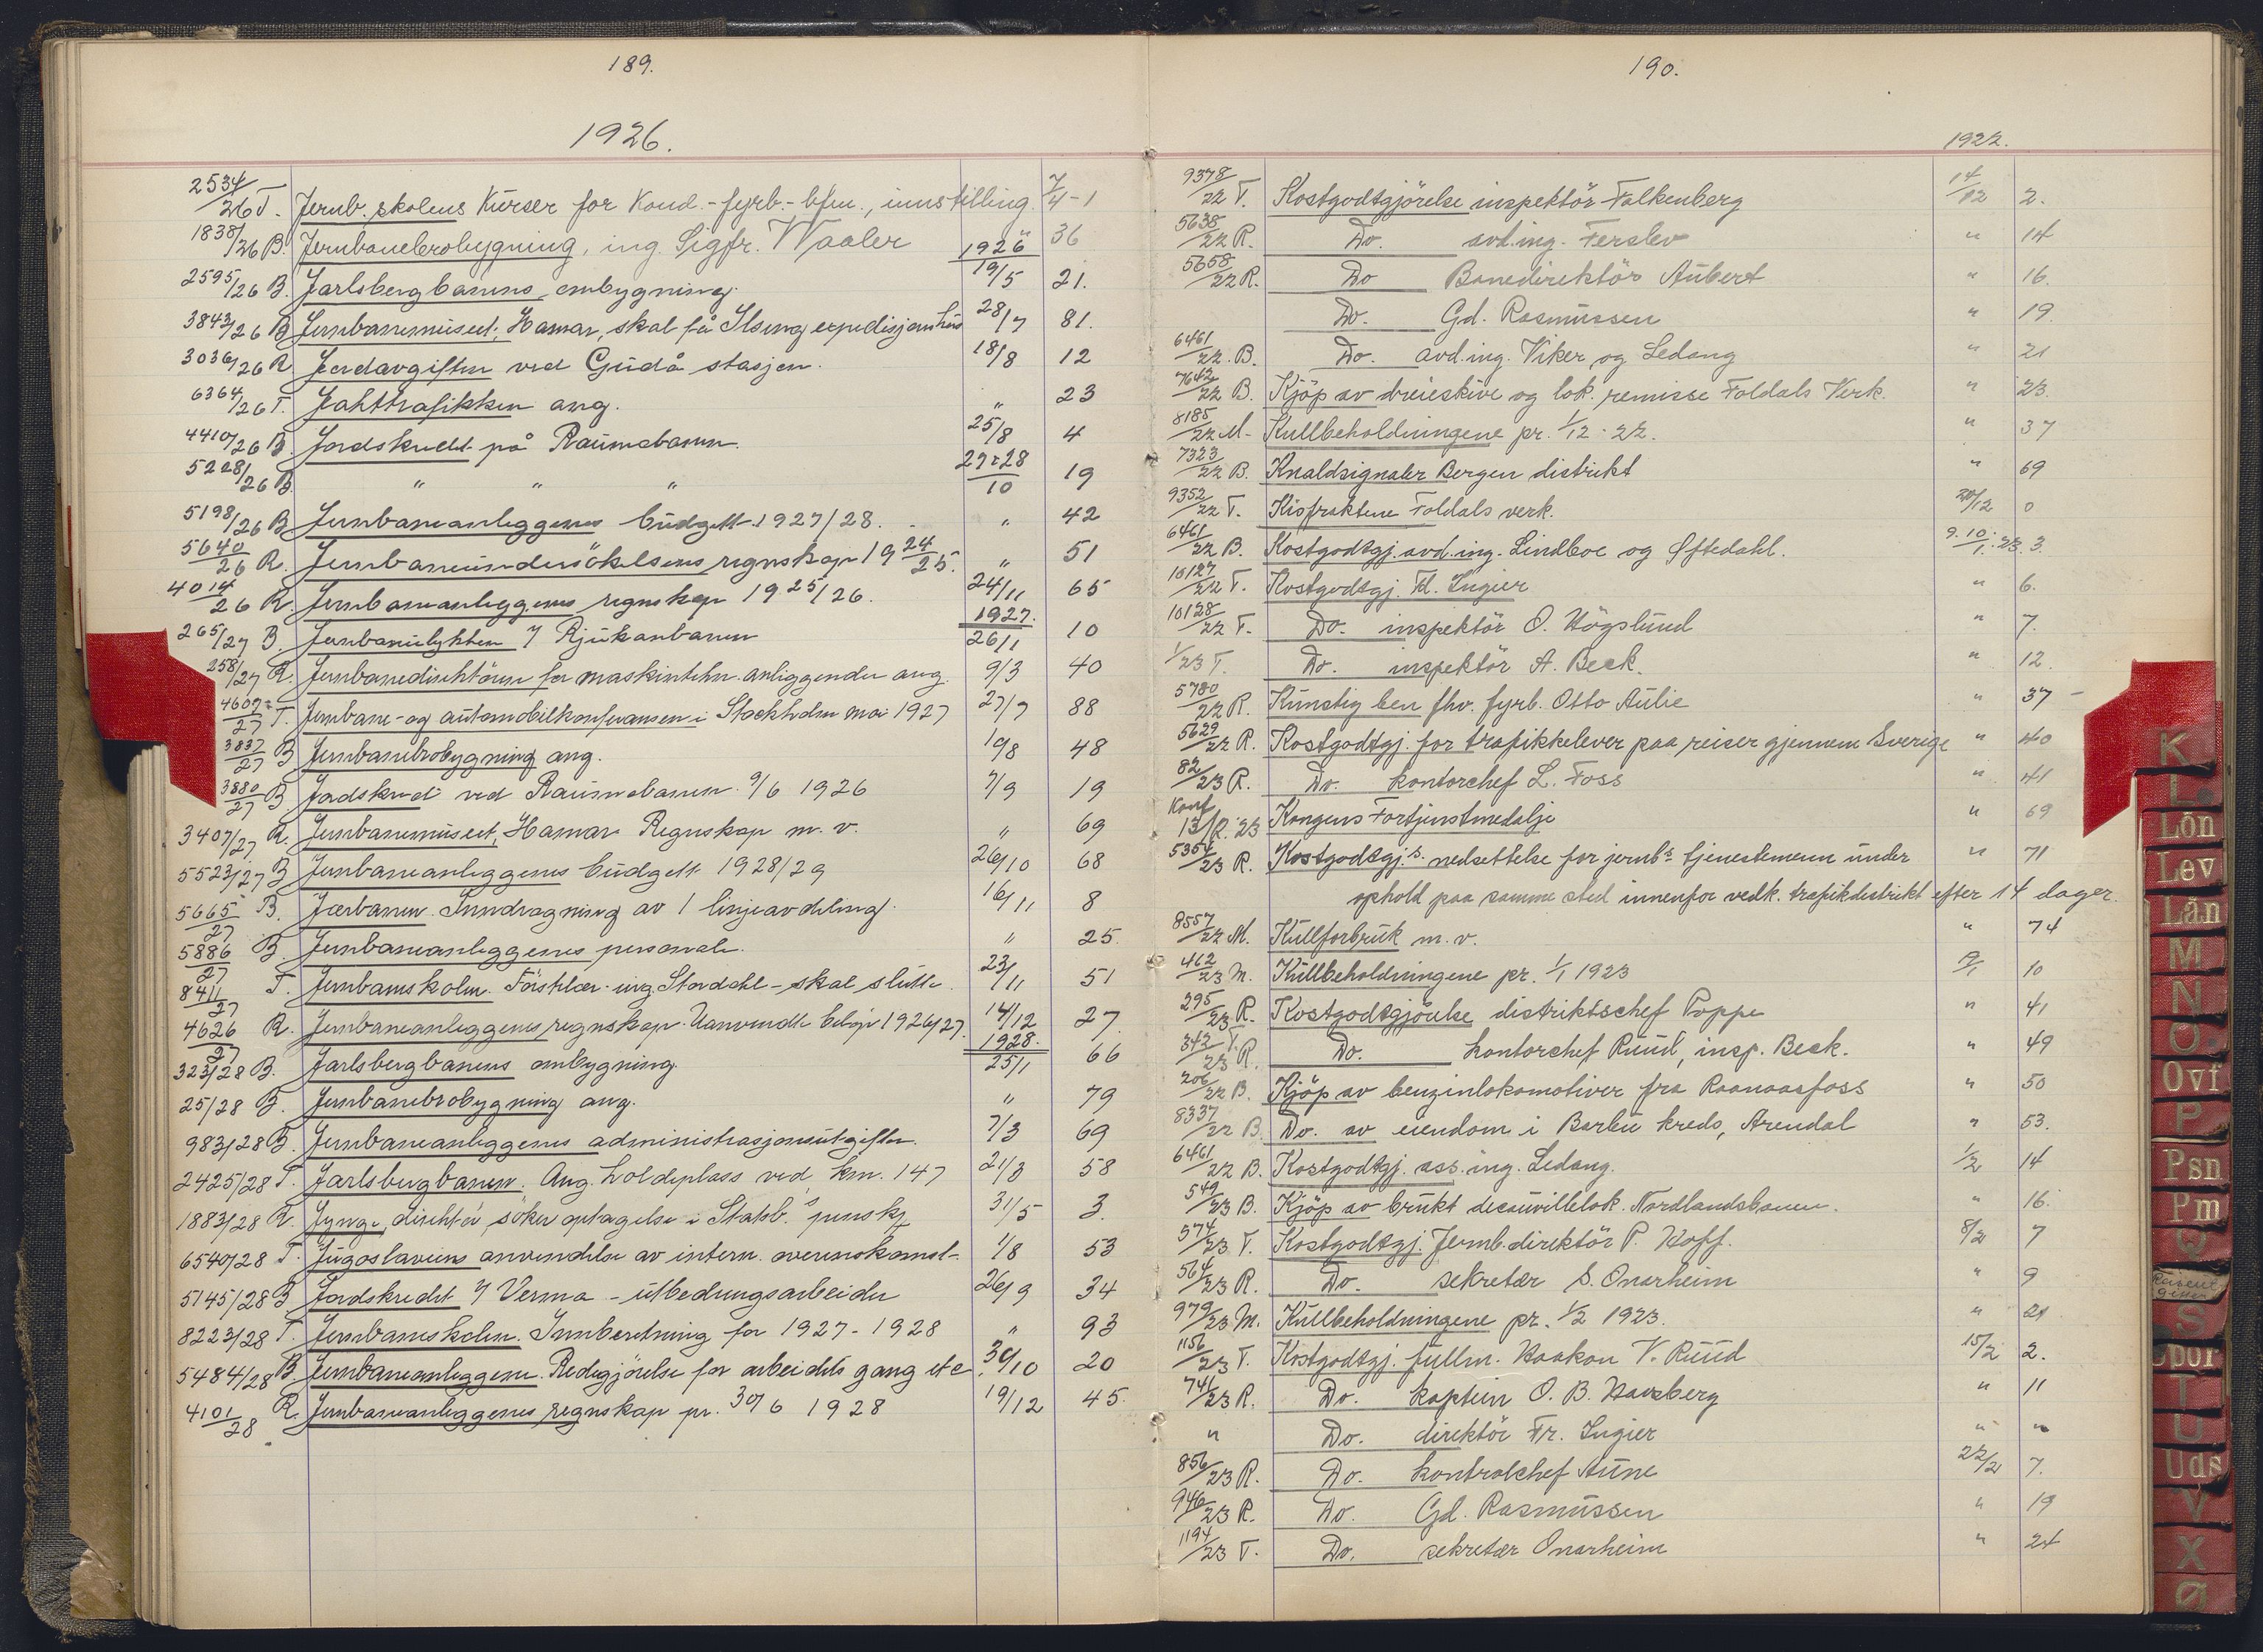 189.
1926.
2534/26 T. Jernb. skolens kurser for kond.-fyrb.-bfm., innstilling. 7/4-1
1838/26 B. Jernbanebrobygning, ing. Sigfr. Waaler " 36
1926
2595/26 B. Jarlsbergbanens ombygning. 19/5 21.
3843/26 B Jernbanemuseet, Hamar, skal få Ilseng expedisjonshus 28/7 81.
3036/26 R Jordavgiften ved Gudå stasjon. 18/8 12
6364/26 T. Jakttrafikken ang. " 23
4410/26 B. Jordskredet på Raumabanen. 25/8 4
5228/26 B. " " " 27&28/10 19
5198/26 B Jernbaneanleggenes budgett 1927/28. " 42
5640/26 R. Jernbaneundersökelsens regnskap 1924/25. " 51
4014/26 R. Jernbaneanleggenes regnskap 1925/26. 24/11 65
1927.
265/27 B. Jernbaneulykken Rjukanbanen 26/1 10
258/27 R. Jernbanedirektören for maskintekn. anliggender ang. 9/3 40
4607/27 T. Jernbane- og automobilkonferansen i Stockholm mai 1927 27/7 88
3837/27 B Jernbanebrobygning ang. 1/8 48
3880/27 B Jordskred ved Raumabanen 9/6 1926 7/9 19
3407/27 R. Jernbanemuseet, Hamar Regnskap m. v. " 69
5523/27 B Jernbaneanleggenes budgett 1928/29 26/10 68
5665/27 B. Jærbanen. Inndragning av 1 linjeavdeling. 16/11 8
5886/27 B. Jernbaneanleggenes personale. " 25.
8411/27 T. Jernbaneskolen. Förstelær. ing. Stordahl - skal slutte. 23/11 51
4626/27 R. Jernbaneanleggenes regnskap. Uanvendte beløp 1926/27. 14/12 27.
1928.
323/28 B. Jarlsbergbanens ombygning. 25/1 66
25/28 B. Jernbanebrobygning ang. " 79
983/28 B. Jernbaneanleggenes administrasjonsutgifter. 7/3 69
2425/28 T. Jarlsbergbanen. Ang. holdeplass ved km. 147 21/3 58
1883/28 R. Jynge, direktör, söker optagelse i Statsb.s pensk. 31/5 3.
6540/28 T. Jugoslaviens anvendelse av intern. overenskomst- 1/8 53
5145/28 B Jordskredet Verma - utbedringsarbeider 26/9 34
8223/28 T. Jernbaneskolen. Innberetning for 1927-1928 " 93
5484/28 B. Jernbaneanleggene. Redegjörelse for arbeidets gang etc. 30/10 20
4101/28 R. Jernbaneanleggenes regnskap pr. 30/6 1928 19/12 45.
190.
1922.
9378/22 T. Kostgodtgjörelse inspektör Falkenberg 14/12 2.
5638/22 R. Do. avd.ing. Ferslev " 14
5658/22 R. Do Banedirektör Aubert " 16.
Do. Gd. Rasmussen " 19
6461/22 B. Do. avd.ing. Viker og Ledang " 21
7642/22 B. Kjöp av dreieskive og lok. remisse Foldals Verk. " 23.
8185/22 M. Kullbeholdningene pr. 1/12-22. " 37
7323/22 B. Knaldsignaler Bergen distrikt " 69
9352/22 T. Kisfraktene Foldals verk. 20/12 0
6461/22 B. Kostgodtgj. avd.ing. Lindboe og Øftedahl. 9.10/1.23. 3.
10127/22 T. Kostgodtgj. Fr. Ingier " 6.
10128/22 T. Do. inspektör O. Högslund " 7.
1/23 T. Do. inspektör A. Beck. " 12.
5780/22 R. Kunstig ben fhv. fyrb. Otto Aulie " 37
5629/22 R. Kostgodtgj. for trafikkelever paa reiser gjennem Sverige " 40
82/23 R. Do. kontorchef L. Foss " 41
Konf 13/R.23 Kongens Fortjenstmedalje " 69
5354/23 R. Kostgodtgj.s nedsettelse for jernb.s tjenestemenn under " 71
ophold paa samme sted innenfor vedk. trafikdistrikt efter 14 dager.
8557/22 M. Kullforbruk m. v. " 74
462/23 M. Kullbeholdningene pr. 1/1 1923 19/1 10
295/23 R. Kostgodtgjörelse distriktschef Poppe " 41
342 T./23 R. Do. kontorchef Ruud, insp. Beck. " 49
206/22 B. Kjöp av benzinlokomotiver fra Raanaasfoss " 50
8337/22 B. Do. av eiendom i Barbu kreds, Arendal " 53.
6461/22 B. Kostgodtgj. ass. ing. Ledang. 1/2 14
549/23 B. Kjöp av brukt decauvillelok. Nordlandsbanen. " 16.
574/23 T. Kostgodtgj. Jernb.direktör P. Hoff. 8/2 7
564/23 R. Do. sekretær S. Onarheim " 9
979/23 M. Kullbeholdningene pr. 1/2 1923. " 21
1156/23 T. Kostgodtgj. fullm. Haakon V. Ruud 15/2 2.
741/23 R. Do. kaptein O. B. Havsberg " 11
" Do. direktör Fr. Ingier " "
856/23 R. Do. kontrolchef Aune 22/2 7.
946/23 R. Do. Gd. Rasmussen " 19
1194/23 T. Do. sekretær Onarheim " 24
K
L
Lön
Lev
Län
M
N
O
Ovf
P
Psn
Pm
Q
S
Spor
T
U
Uds
V
X
Ø